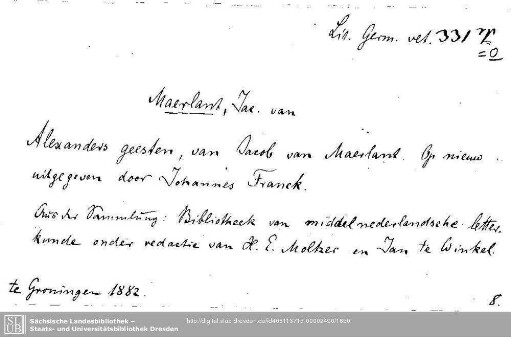 Lit. Germ. vet. 331
= 0
Maerlant, Jac. van
Alexanders geesten, van Jacob van Maerlant. Op nieuw
uitgegeven door Johannes Franck.
Aus der Sammlung: Bibliotheek van middelnederlandsche letter-
kunde onder redactie van H. E. Moltzer en Jan te Winkel.
te Groningen 1882.
8.
SLUB
Sächsische Landesbibliothek –
Staats- und Universitätsbibliothek Dresden